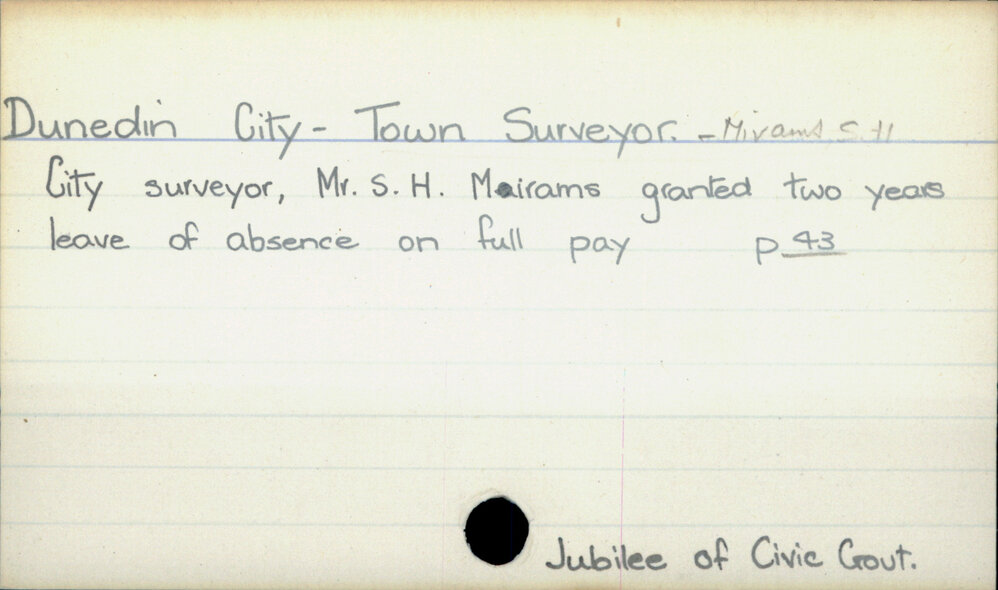 Dunedin City - Town Surveyor. - Mirams, S. H
City surveyor, Mr. S. H. Mairams granted two years
leave of absence on full pay p 43
Jubilee of Civic Govt.